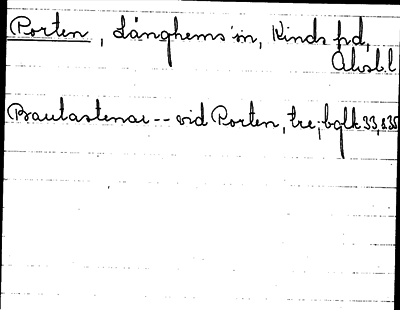 Porten, Länghems sn, Kinds hd,
Älvsb.l
Bautastenar -- vid Porten, tre, bglk 33, s 35